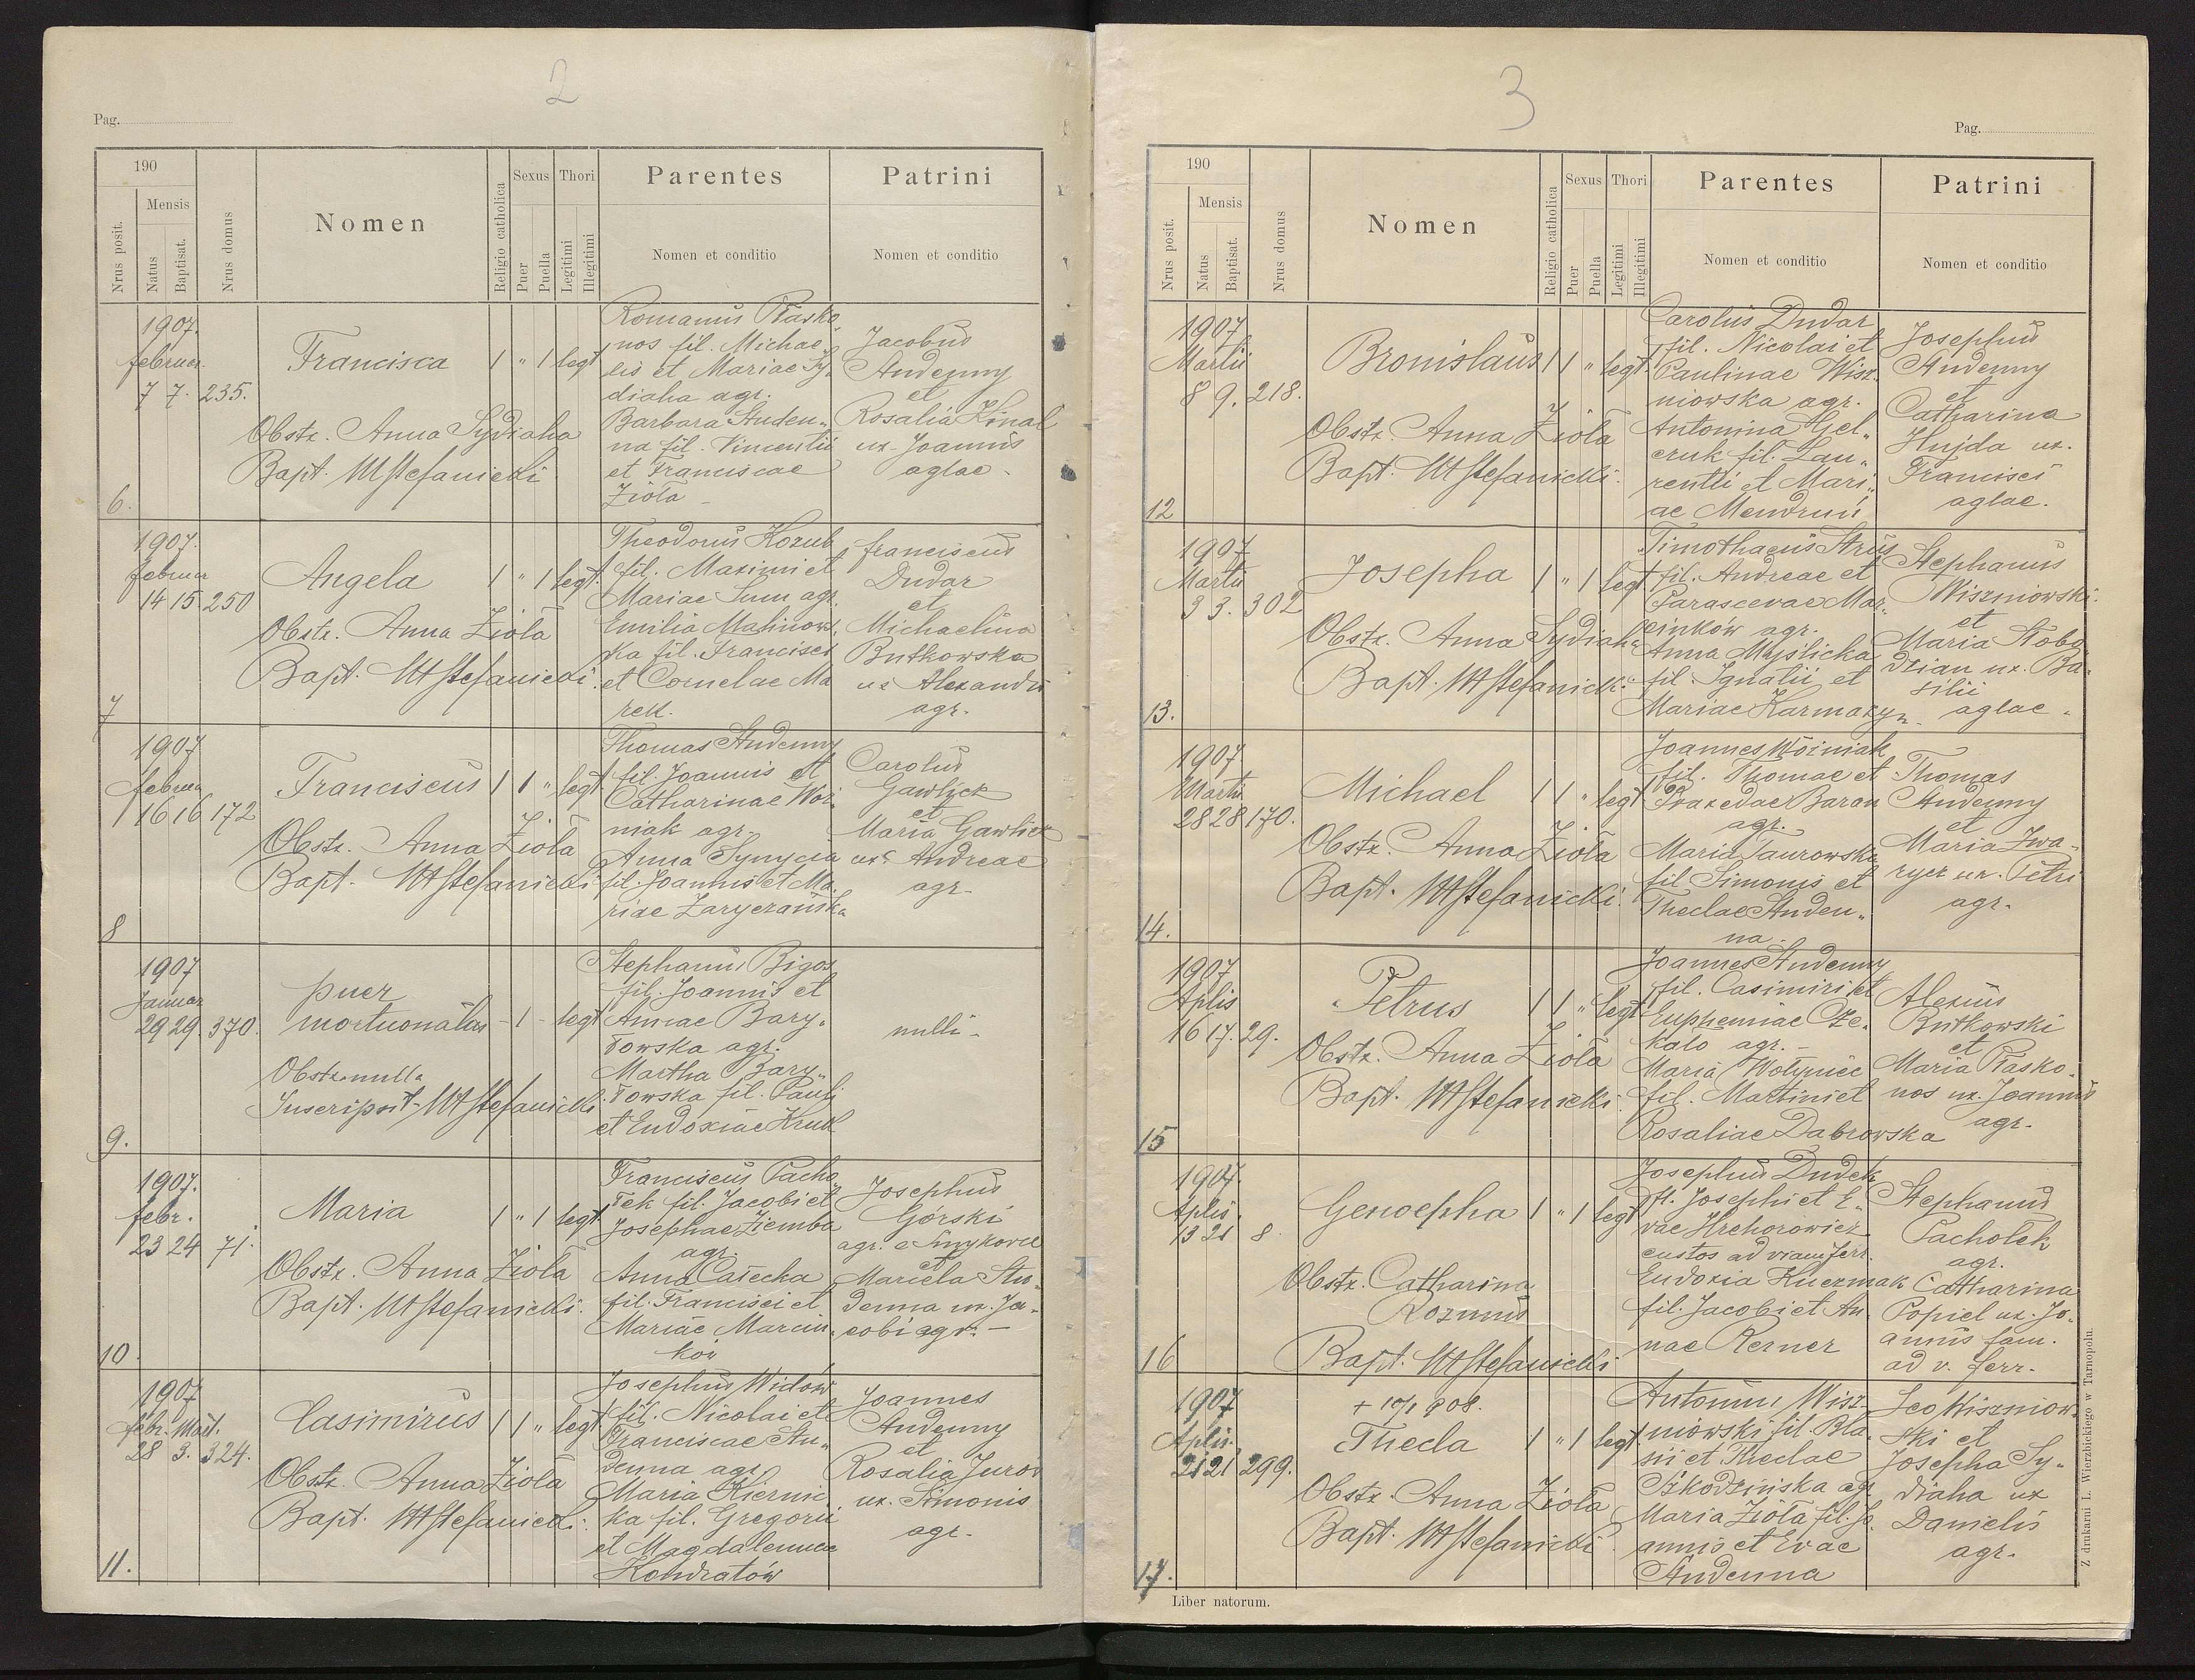 2
Pag.
190
Nrus posit.
Mensis
Natus
Baptisat.
Nrus domus
Nomen
Religio catholica
Sexus
Puer
Puella
Thori
Legitimi
Illegitimi
Parentes
Nomen et conditio
Patrini
Nomen et conditio
6.
1907.
februar.
7 7. 235.
Francisca 1 " 1 legt
Obstr. Anna Sydiaha
Bapt. MStefanicki
Romanus Płasko
nos fil. Michae
lis et Mariae Sy
diaha agr.
Barbara Studen„
na fil. Vincentii
et Franciscae
Zioła –
Jacobus
Studenny
et
Rosalia Kinal
ux. Joannis
aglae -
7
1907.
februar
14 15. 250
Angela 1 " 1 legt.
Obstr. Anna Zioła
Bapt. MStefanicki
Theodorus Kozub
fil. Maximi et
Mariae Sum agr.
Emilia Malinows.
ka fil. Francisci
et Cornelae Ma
rek.
Franciscus
Dudar
et
Michaelina
Butkowska
ux Alexandri
agr.
8
1907
februar
16 16 172
Franciscus 1 1 " legt
Obstr. Anna Zioła
Bapt. MStefanicki
Thomas Studenny
fil. Joannis et
Catharinae Woź
niak agr.
Anna Synycia
fil. Joannis et Ma
riae Zaryczańska
Carolus
Gawlick
et
Maria Gawlick
ux. Andreae
agr.
9.
1907
Januar
29 29. 370.
puer
mortuonatus - 1 - legt
Obstr. nulla
Inscripsit MStefanicki
Stephanus Bigos
fil. Joannis et
Annae Bary„
łowska agr.
Martha Bary„
łowska fil. Pauli
et Eudoxiae Kruk
nulli -
10
1907.
febr.
23 24 71.
Maria 1 " 1 legt
Obstr. Anna Zioła
Bapt. MStefanicki.
Franciscus Pacho
łek fil. Jacobi et
Josephae Ziemba
agr.
Anna Całecka
fil. Francisci et
Mariae Marcin
ków
Josephus
Górski
agr. e Smykowce
et
Mariela Stu„
denna ux. Ja„
cobi agr. –
11.
1907
febr. Mart.
28 3. 324.
Casimirus 1 1 " legt.
Obstr. Anna Zioła
Bapt. MStefanicki.
Josephus Widów
fil. Nicolai et
Franciscae Stu„
denna agr.
Maria Kiernic
ka fil. Gregorii
et Magdalennae
Kondratów
Joannes
Studenny
et
Rosalia Jurov
ux. Simonis
agr.
3
Pag.
190
Nrus posit.
Mensis
Natus
Baptisat.
Nrus domus
Nomen
Religio catholica
Sexus
Puer
Puella
Thori
Legitimi
Illegitimi
Parentes
Nomen et conditio
Patrini
Nomen et conditio
12
1907
Martii
8 9. 218.
Bronislaus 1 1 " legt.
Obstr. Anna Zioła
Bapt. MStefanicki.
Carolus Dudar
fil. Nicolai et
Paulinae Wisz.
niowska agr.
Antonina Hel„
cruk fil. Lau„
rentii et Mari„
ae Mendruń
Josephus
Studenny
et
Catharina
Hujda ux.
Francisci
aglae.
13.
1907
Martii
3 3. 302
Josepha 1 " 1 legt
Obstr. Anna Sydiaha
Bapt. MStefanicki.
Timothaeus Strus
fil. Andreae et
Parascevae Mar.
cinków agr.
Anna Myślicka
fil. Ignatii et
Mariae Karmazyn
Stephanus
Wiszniowski.
et
Maria Słobo
dzian ux. Ba„
silii
aglae.
14.
1907
Martii
28 28 170.
Michael 1 1 " legt
Obstr. Anna Zioła
Bapt. MStefanicki.
Joannes Woźniak
fil. Thomae et
Praxedae Baran
agr.
Maria Taurowska
fil Simonis et
Theclae Studen„
na.
Thomas
Studenny
et
Maria Zwa„
rycz ux. Petri
agr.
15
1907
Aplis
16 17. 29.
Petrus 1 1 " legt
Obstr. Anna Zioła
Bapt. MStefanicki.
Joannes Studenny
fil. Casimiri et
Euphemiae Cze.
kało agr. –
Maria Wołyniec
fil. Martini et
Rosaliae Dabrowska
Alexius
Butkowski
et
Maria Płasko.
nos ux. Joannis
agr.
16
1907.
Aplis.
13 21 8
Genoepha 1 " 1 legt
Obstr. Catharina
Rozmus
Bapt. MStefanicki
Josephus Dudek
fil. Josephi et E„
vae Hrehorowicz
custos ad viam ferr.
Eudoxia Kuczmak
fil. Jacobi et An
nae Kerner
Stephanus
Pachołek
agr.
Catharina
Popiel ux. Jo.
annis fam.
ad v. ferr.
17.
1907
Aplis.
21 21 299.
+ 10/1 908.
Thecla 1 " 1 legt
Obstr. Anna Zioła
Bapt. MStefanicki
Antonius Wisz„
niowski fil. Bla„
sii et Theclae
Szkodzińska agr
Maria Zioła fil. Jo.
annis et Evae
Studenna
Leo Wiszniow„
ski et
Josepha Sy„
diaha ux
Danielis
agr.
Liber natorum.
Z drukarni L. Wierzbickiego w Tarnopolu.